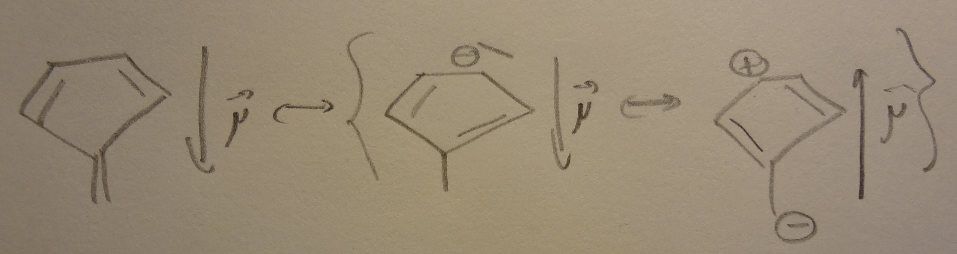 ⊖ ⊕
μ⃗ ↔ { μ⃗ ↔ μ⃗ }
⊖